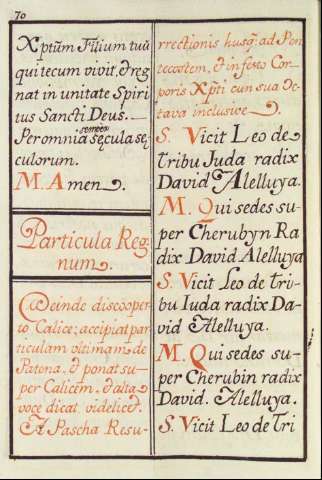 70
Xptũm Filium tuũ
qui tecum vivit, et reg
nat in unitate Spiri
tus Sancti Deus.
semper
Per omnia sęcula sę
culorum.
M. Amen.
Particula Reg
num.
Deinde discooper
to Calice; accipiat par
ticulam ultimam de
Patena, et ponat su-
per Calicem, et alta
voce dicat, videlicet.
A Pascha Resu-
rrectionis husq; ad Pen
tecostem, et in festo Cor-
poris Xpti cun sua Oc-
tava inclusive.
S. Vicit Leo de
tribu Iuda radix
David Alelluya.
M. Qui sedes su-
per Cherubyn Ra
dix David Alelluya
S. Vicit Leo de tri-
bu Iuda radix Da-
vid Alelluya.
M. Qui sedes su-
per Cherubin radix
David. Alelluya.
S. Vicit Leo de Tri